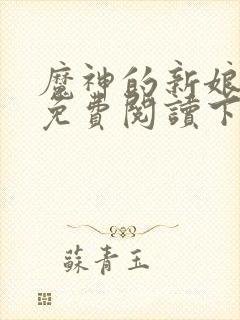 魔神的新娘
免費閱讀下
蘇青玉